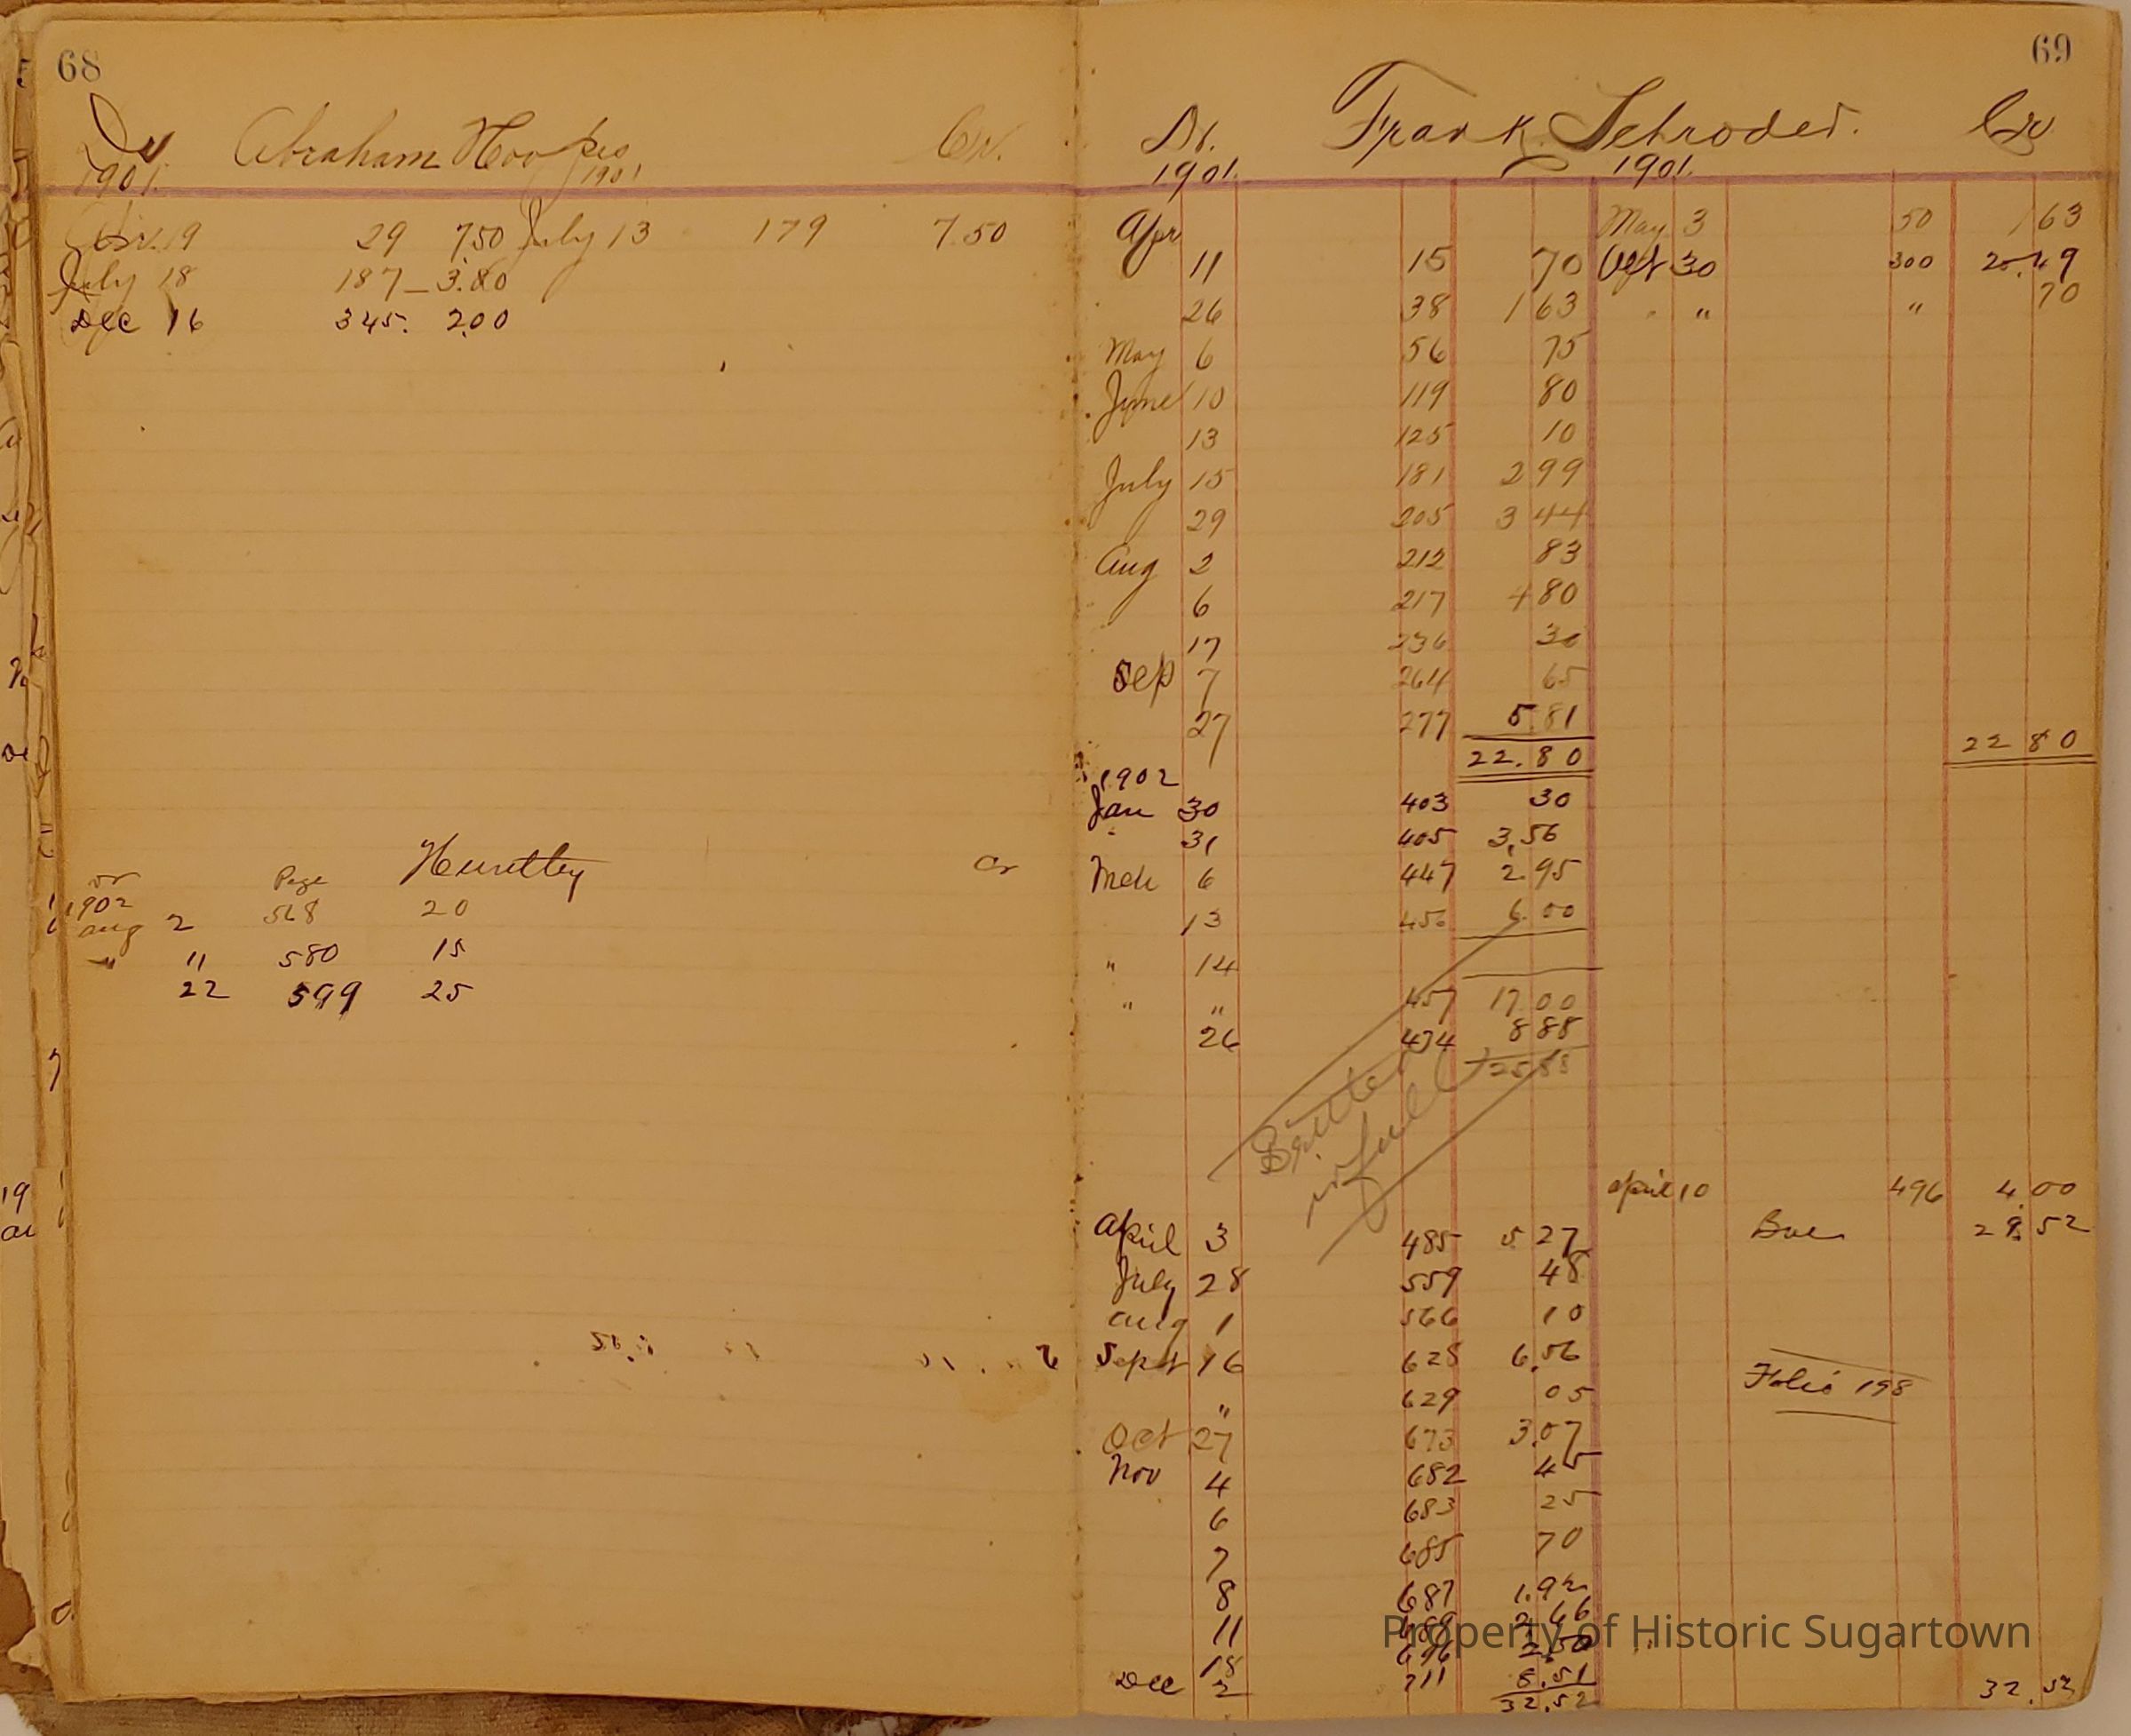 68
Dr Abraham Hoopes Cr.
1901. 1901
19 29 7.50 July 13 179 7.50
July 18 187 3.80
Dec 16 345. 2.00
Page Cr
1902
Aug 2 568 20
" 11 580 15
22 599 25
69
Dr. Frank Schroder. Cr
1901. 1901.
Apr May 3 50 1 63
11 15 70 Oct 30 300 20.49
26 38 1 63 " " " 70
May 6 56 75
June 10 119 80
13 125 10
July 15 181 2 99
29 205 3 44
Aug 2 212 83
6 217 4 80
17 236 30
Sep 7 264 65
27 277 5.81
22.80 22 80
1902
Jan 30 403 30
31 405 3,56
Mch 6 447 2 95
13 456 6.00
" 14
" " 457 17 00
26 474 8 88
25 88
Settled
in full
April 10 496 4.00
April 3 485 5 27 Due 28 52
July 28 559 48
Aug 1 566 10
Sept 16 628 6.56
Folio 198
" 629 05
Oct 27 673 3.07
Nov 4 682 45
6 683 25
7 685 70
8 687 1.92
11 689 2 66
18 696 2.50
Dec 2 711 8.51
32.52 32.52
Property of Historic Sugartown